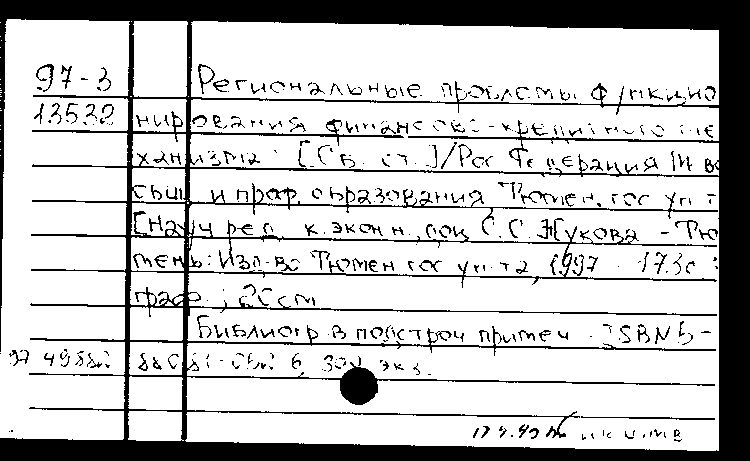 97-3 Региональные проблемы функцио
13532 нирования финансово-кредитного ме
ханизма: [Сб. ст.] / Рос. Федерация М-во
общ. и проф. образования, Тюмен. гос. ун-т
[Науч. ред. к. экон. н., доц. С.С. Жукова. - Тю
мень: Изд-во Тюмен. гос. ун-та, 1997. - 173 с.:
граф.; 20 см
Библиогр. в подстроч. примеч. ISBN 5-
300 экз.